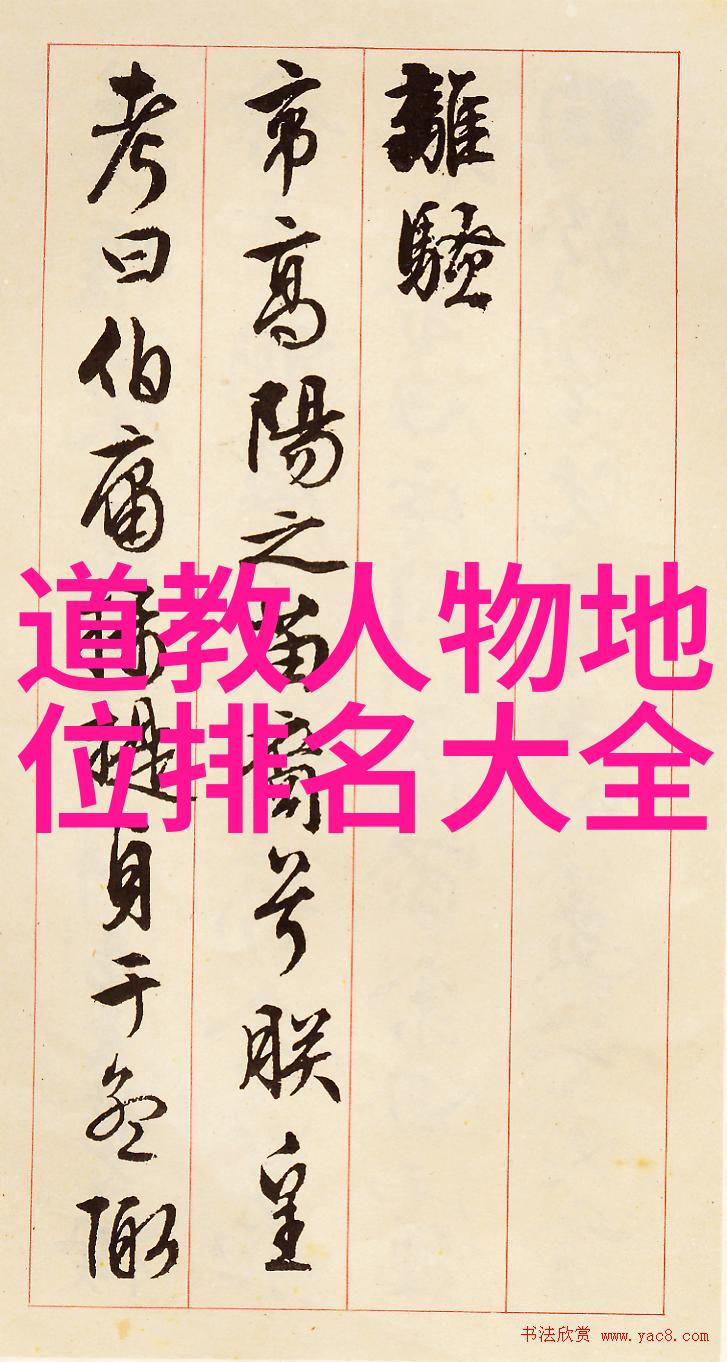 離騷
帝高陽之苗裔兮朕皇
考曰伯庸攝提貞于孟陬
道教人物地
位排名大全
书法欣赏 www.yac8.com